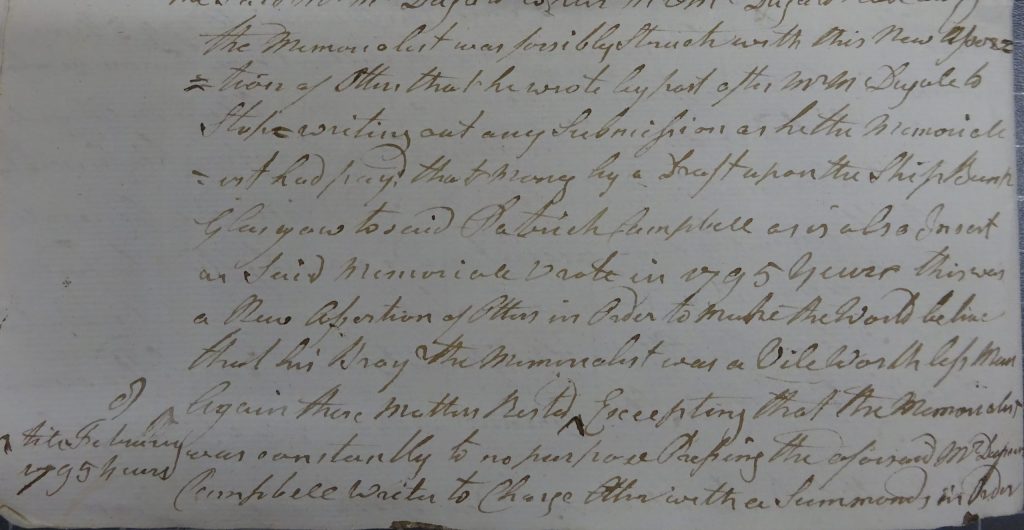 the Memorialist was forsibly Struck with this New Asser=
=tion of Otters that he wrote by post after Mr Mc Dugale to
Stop writing out any Submission as he the Memoriale
=ist had payd that Money by a Draft upon the Ship Bank
Glasgow to said Patrick Campbell as is also Insert
in Said Memoriale Wrote in 1795 Years this was
a New Assertion of Otters in Order to make the World belive
that his the Memorialist was a Vile Worthless Man
Again these Matters Rested Excepting that the Memorialist
was constantly to no purpose Pressing the aforsaid Mr
Campbell Writer to Charge Otter with a Summonds in Order
till February
1795 Years